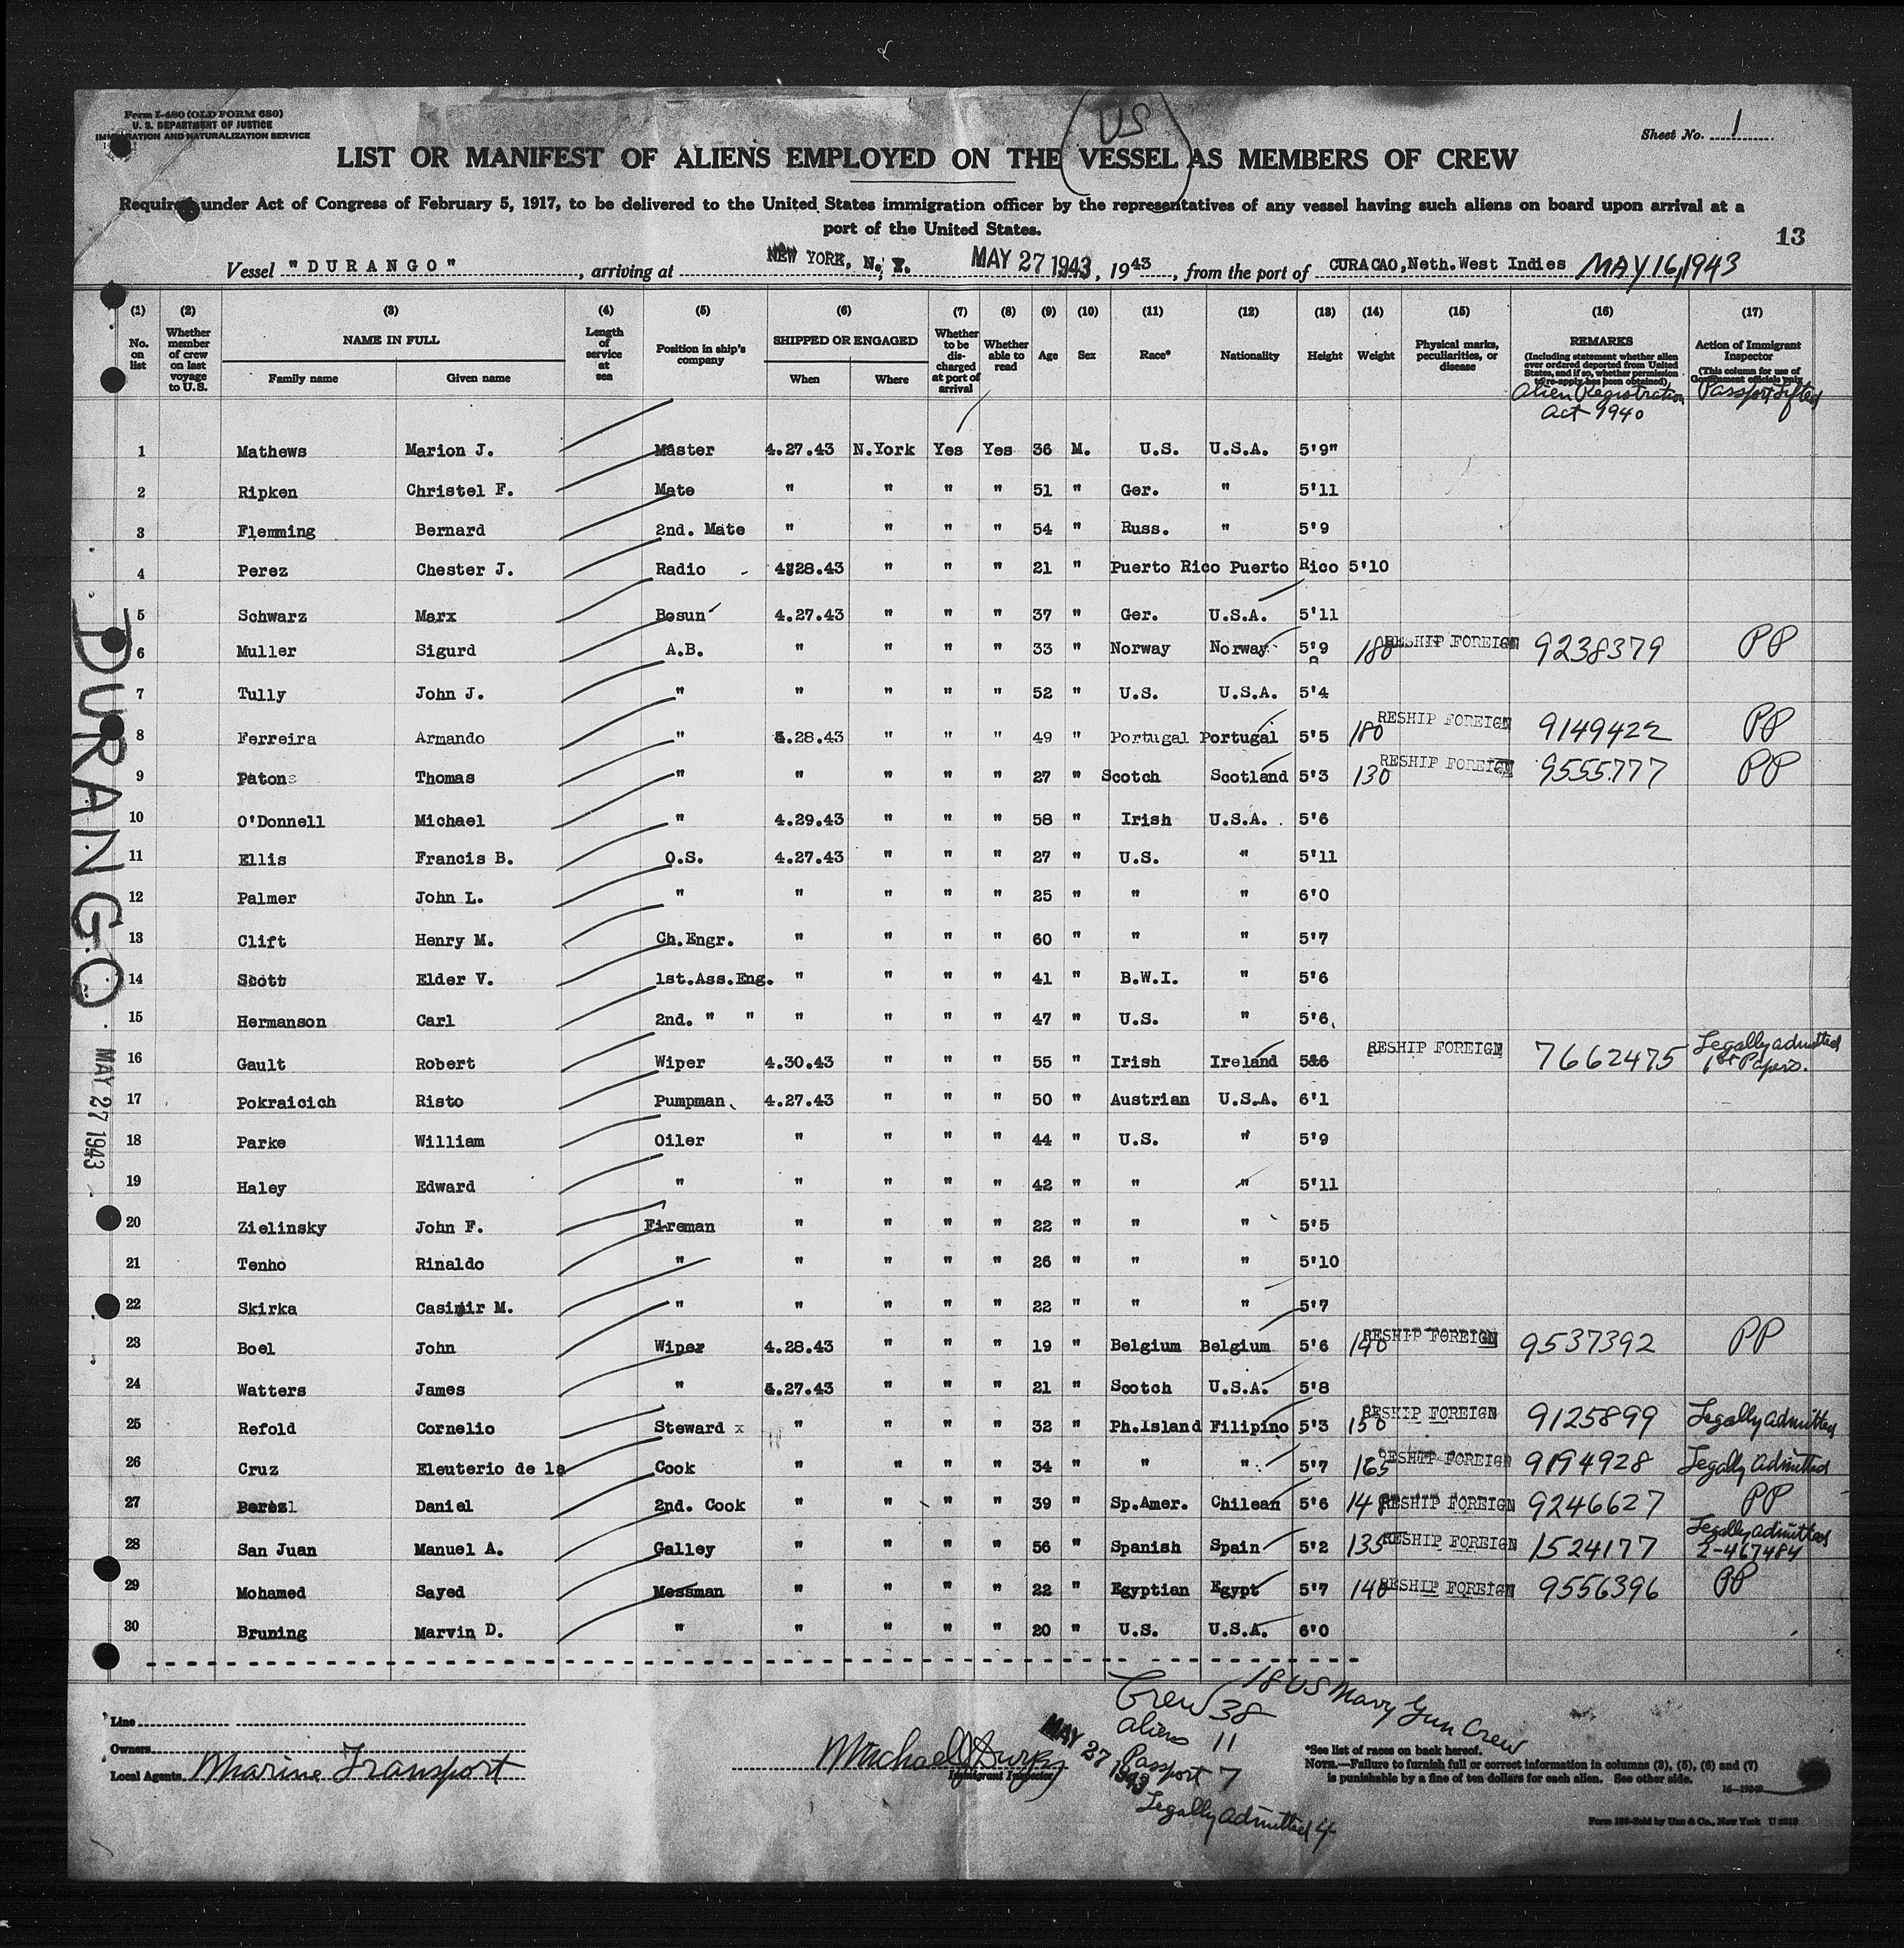 Form I-480 (OLD FORM 680)
U. S. DEPARTMENT OF JUSTICE
IMMIGRATION AND NATURALIZATION SERVICE
(US)
Sheet No. 1
LIST OR MANIFEST OF ALIENS EMPLOYED ON THE VESSEL AS MEMBERS OF CREW
Required under Act of Congress of February 5, 1917, to be delivered to the United States immigration officer by the representatives of any vessel having such aliens on board upon arrival at a
port of the United States.
13
Vessel "DURANGO", arriving at NEW YORK, N. Y. MAY 27 1943, 1943, from the port of CURACAO, Neth. West Indies MAY 16, 1943
(1) (2) (3) (4) (5) (6) (7) (8) (9) (10) (11) (12) (13) (14) (15) (16) (17)
No. on list
Whether member of crew on last voyage to U.S.
NAME IN FULL
Family name Given name
Length of service at sea
Position in ship's company
SHIPPED OR ENGAGED
When Where
Whether to be discharged at port of arrival
Whether able to read
Age
Sex
Race*
Nationality
Height
Weight
Physical marks, peculiarities, or disease
REMARKS
(Including statement whether alien ever ordered deported from United States, and if so, whether permission to re-apply has been obtained)
Action of Immigrant Inspector
(This column for use of Government officials only)
Alien Registration Act 1940
Passport Lifted
1 Mathews Marion J. Master 4.27.43 N.York Yes Yes 36 M. U.S. U.S.A. 5'9"
2 Ripken Christel F. Mate " " " " 51 " Ger. " 5'11
3 Flemming Bernard 2nd. Mate " " " " 54 " Russ. " 5'9
4 Perez Chester J. Radio - 4.28.43 " " " 21 " Puerto Rico Puerto Rico 5'10
5 Schwarz Marx Bosun 4.27.43 " " " 37 " Ger. U.S.A. 5'11
6 Muller Sigurd A.B. " " " " 33 " Norway Norway 5'9 180 RESHIP FOREIGN 9238379 PP
7 Tully John J. " " " " " 52 " U.S. U.S.A. 5'4
8 Ferreira Armando " 4.28.43 " " " 49 " Portugal Portugal 5'5 180 RESHIP FOREIGN 9149422 PP
9 Patons Thomas " " " " " 27 " Scotch Scotland 5'3 130 RESHIP FOREIGN 9555777 PP
10 O'Donnell Michael " 4.29.43 " " " 58 " Irish U.S.A. 5'6
11 Ellis Francis B. O.S. 4.27.43 " " " 27 " U.S. " 5'11
12 Palmer John L. " " " " " 25 " " " 6'0
13 Clift Henry M. Ch.Engr. " " " " 60 " " " 5'7
14 Scott Elder V. 1st.Ass.Eng. " " " " 41 " B.W.I. " 5'6
15 Hermanson Carl 2nd. " " " " " " 47 " U.S. " 5'6
16 Gault Robert Wiper 4.30.43 " " " 55 " Irish Ireland 5'6 RESHIP FOREIGN 7662475 Legally admitted 1st Papers.
17 Pokraicich Risto Pumpman 4.27.43 " " " 50 " Austrian U.S.A. 6'1
18 Parke William Oiler " " " " 44 " U.S. " 5'9
19 Haley Edward " " " " " 42 " " " 5'11
20 Zielinsky John F. Fireman " " " " 22 " " " 5'5
21 Tenho Rinaldo " " " " " 26 " " " 5'10
22 Skirka Casimir M. " " " " " 22 " " " 5'7
23 Boel John Wiper 4.28.43 " " " 19 " Belgium Belgium 5'6 140 RESHIP FOREIGN 9537392 PP
24 Watters James " 4.27.43 " " " 21 " Scotch U.S.A. 5'8
25 Refold Cornelio Steward x " " " " 32 " Ph.Island Filipino 5'3 150 RESHIP FOREIGN 9125899 Legally admitted
26 Cruz Eleuterio de la Cook " " " " 34 " " " 5'7 165 RESHIP FOREIGN 9194928 Legally Admitted
27 Daniel 2nd. Cook " " " " 39 " Sp.Amer. Chilean 5'6 148 RESHIP FOREIGN 9246627 PP
28 San Juan Manuel A. Galley " " " " 56 " Spanish Spain 5'2 135 RESHIP FOREIGN 1524177 Legally admitted 2-467484
29 Mohamed Sayed Messman " " " " 22 " Egyptian Egypt 5'7 140 RESHIP FOREIGN 9556396 PP
30 Bruning Marvin D. " " " " " 20 " U.S. U.S.A. 6'0
DURANGO
MAY 27 1943
Line
Owners
Local Agents Marine Transport
Immigrant Inspector
MAY 27 1943
Crew 38
18 US Navy Gun Crew
aliens 11
Passport 7
Legally admitted 4
*See list of races on back hereof.
NOTE.—Failure to furnish full or correct information in columns (3), (5), (6) and (7)
is punishable by a fine of ten dollars for each alien. See other side.